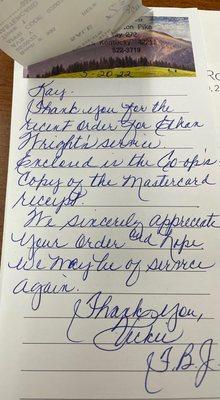 on Pike
Kentucky 42231
522-3719
5-20-22
Kay,
Thank you for the
recent order for Ethan
Wright's service.
Enclosed is the Co-op's
Copy of the Mastercard
receipt.
We sincerely appreciate
your order and hope
we may be of service
again.
Thank you,
Vicki
T.B.J.